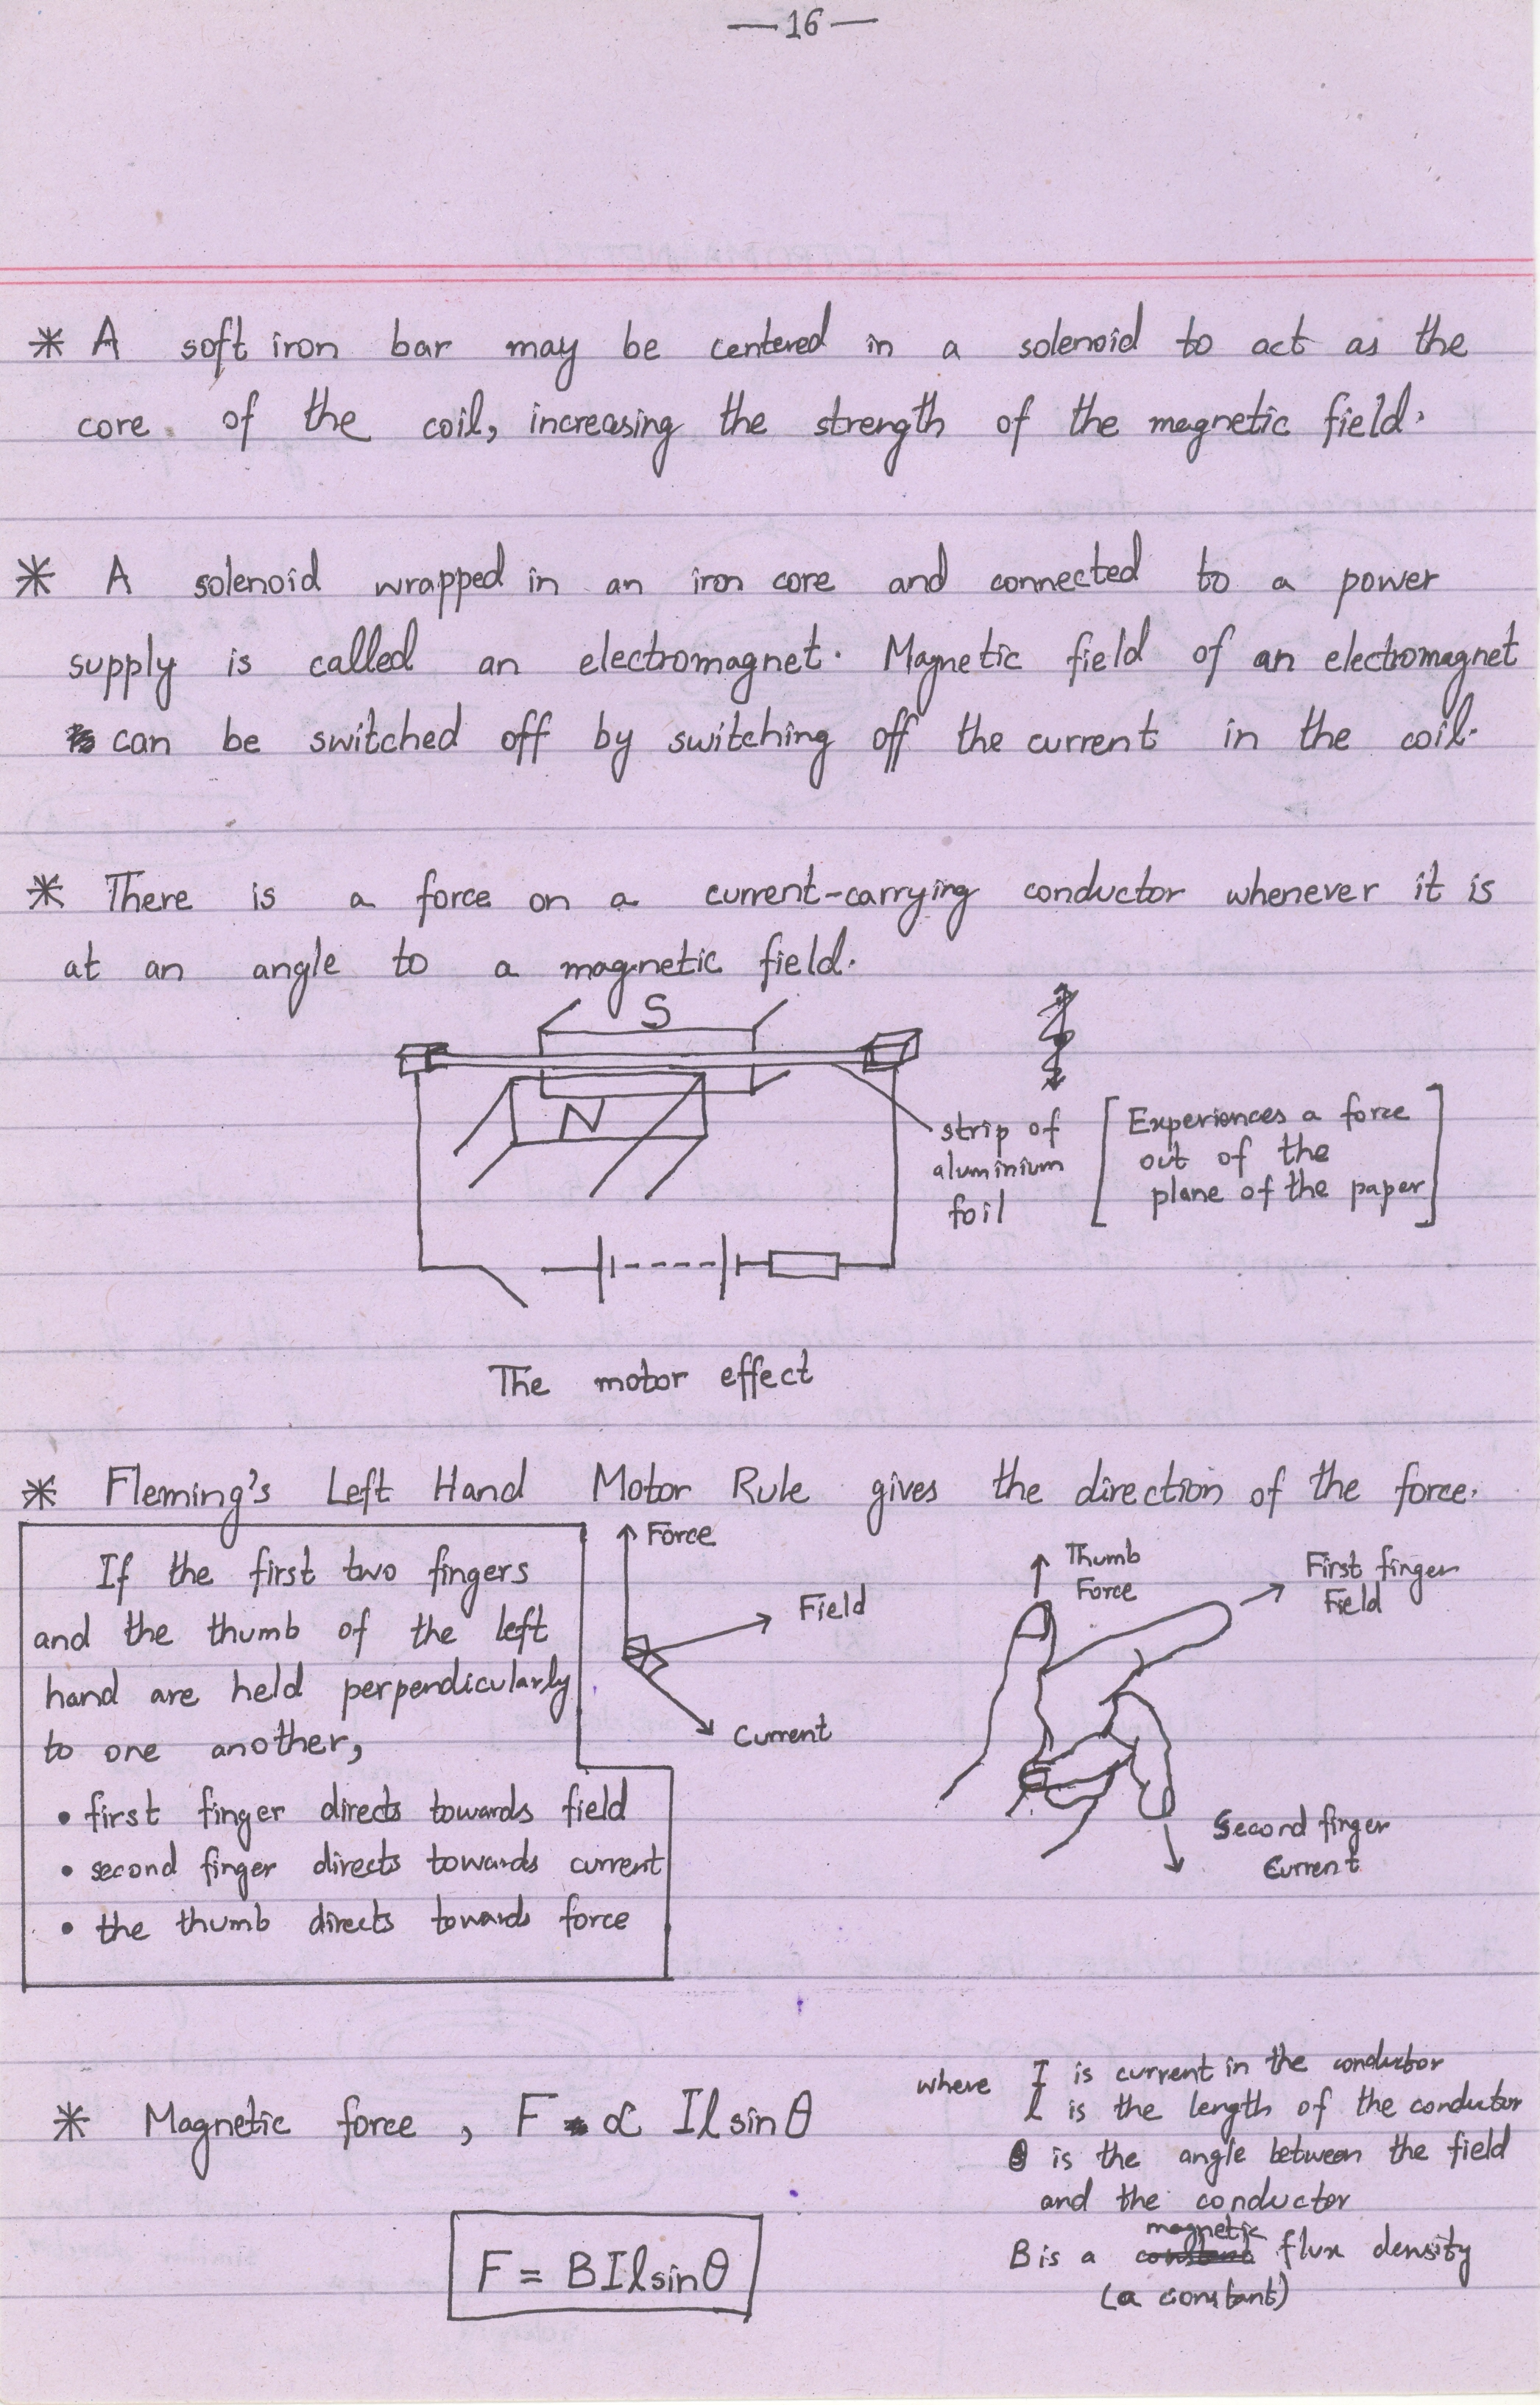 —16—
* A soft iron bar may be centered in a solenoid to act as the
core of the coil, increasing the strength of the magnetic field.
* A solenoid wrapped in an iron core and connected to a power
supply is called an electromagnet. Magnetic field of an electromagnet
can be switched off by switching off the current in the coil.
* There is a force on a current-carrying conductor whenever it is
at an angle to a magnetic field.
S
N
strip of
aluminium
foil
[Experiences a force
out of the
plane of the paper]
The motor effect
* Fleming's Left Hand Motor Rule gives the direction of the force.
If the first two fingers
and the thumb of the left
hand are held perpendicularly
to one another,
• first finger directs towards field
• second finger directs towards current
• the thumb directs towards force
Force
Field
Current
Thumb
Force
First finger
Field
Second finger
Current
* Magnetic force, F ∝ Il sin θ
where I is current in the conductor
l is the length of the conductor
θ is the angle between the field
and the conductor
B is a magnetic flux density
(a constant)
F = BIl sinθ